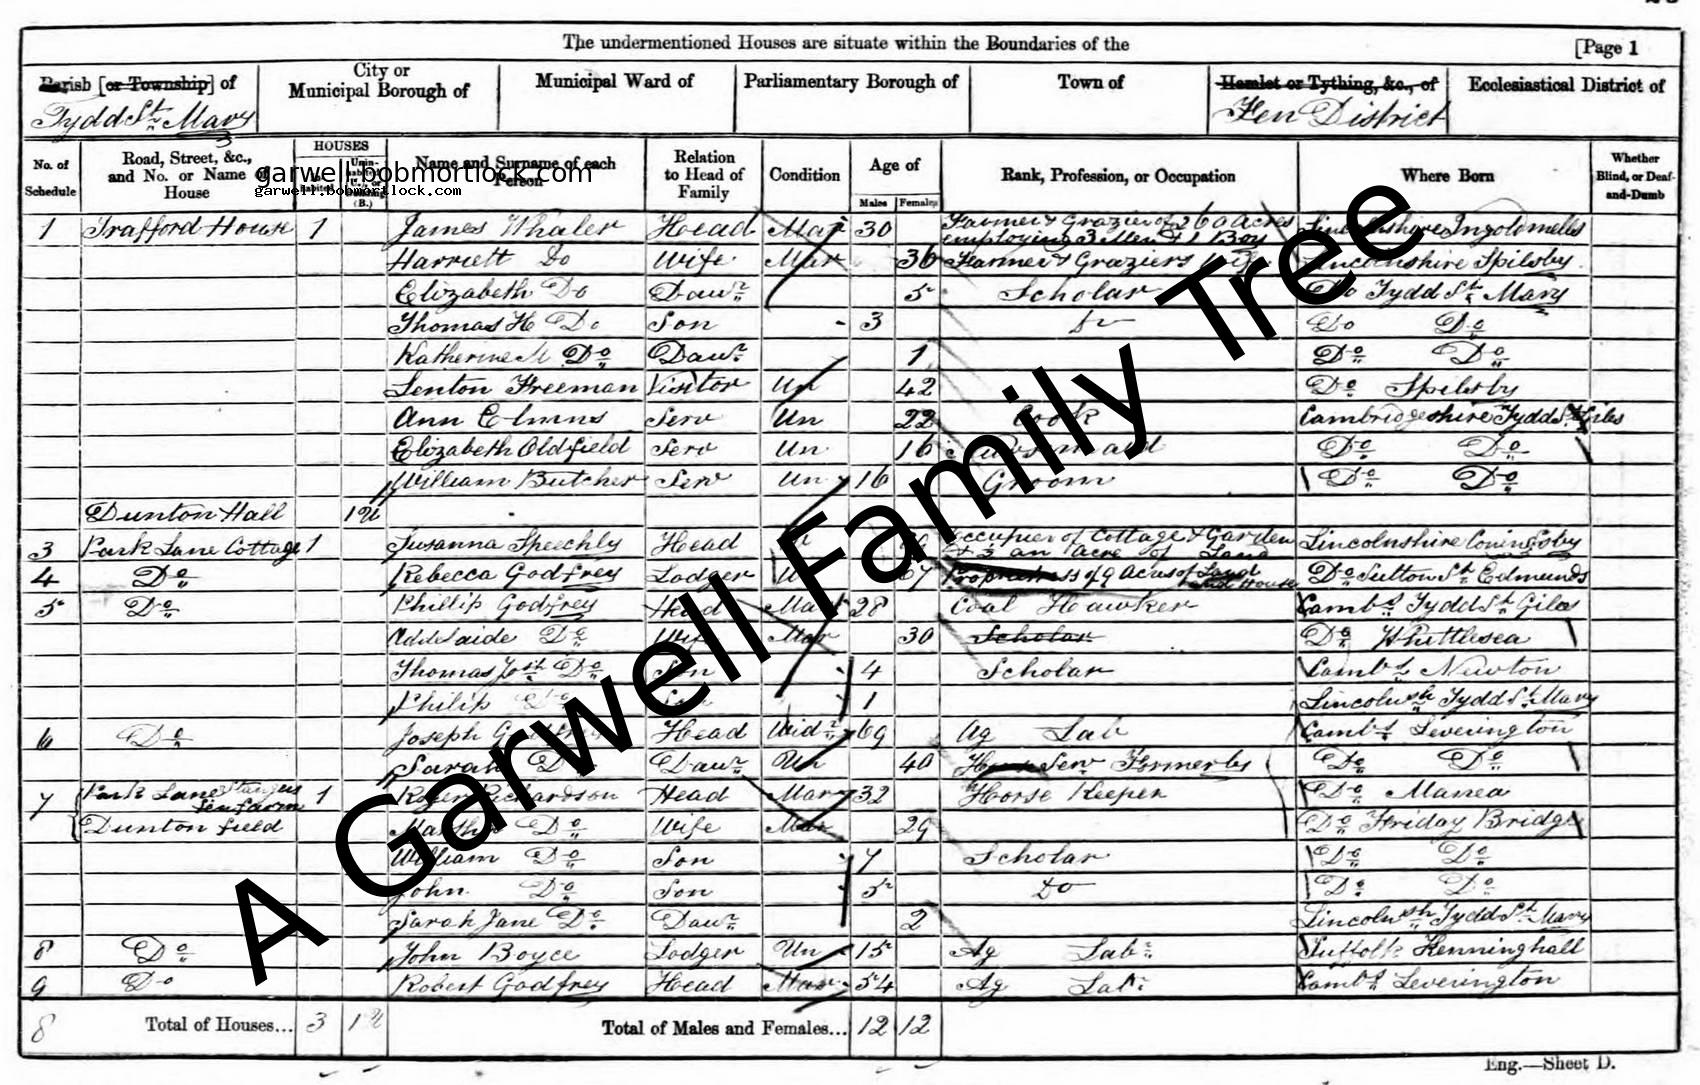 The undermentioned Houses are situate within the Boundaries of the [Page 1
Parish [or Township] of City or Municipal Borough of Municipal Ward of Parliamentary Borough of Town of Hamlet or Tything, &c., of Ecclesiastical District of
Tydd St. Mary Fen District
No. of Schedule Road, Street, &c., and No. or Name of House HOUSES Inhabited Uninhabited (B.) Name and Surname of each Person Relation to Head of Family Condition Age of Males Females Rank, Profession, or Occupation Where Born Whether Blind, or Deaf-and-Dumb
garwell.bobmortlock.com
garwell.bobmortlock.com
1 Trafford House 1 James Whaler Head Mar 30 Farmer & Grazier of 260 Acres employing 3 Men & 1 Boy Lincolnshire Ingoldmells
Harriett Do Wife Mar 36 Farmer & Graziers Wife Lincolnshire Spilsby
Elizabeth Do Dawr. 5 Scholar Do Tydd St. Mary
Thomas H Do Son 3 Do Do Do
Katherine M Do Dawr. 1 Do Do
Lenton Freeman Visitor Un 42 Do Spilsby
Ann Elmns Serv Un 22 Cook Cambridgeshire Tydd St Giles
Elizabeth Oldfield Serv Un 16 Nursmaid Do Do
William Butcher Serv Un 16 Groom Do Do
Dunton Hall 1 U
3 Park Lane Cottage 1 Susanna Speechly Head Occupier of Cottage & Garden & 3 an Acre of Land Lincolnshire Coningsby
4 Do Rebecca Godfrey Lodger U 67 Proprietress of 9 Acres of Land and House Do Sutton St. Edmunds
5 Do Phillip Godfrey Head Mar 28 Coal Hawker Cambs Tydd St Giles
Addelaide Do Wife Mar 30 Scholar Do Whittlesea
Thomas Josh Do Son 4 Scholar Cambs Newton
Philip Do Son 1 Lincolnsh Tydd St. Mary
6 Do Joseph Head Widr. 69 Ag Lab Cambs Leverington
Sarah Do Dawr. Un 40 House Serv Formerly Do Do
7 Park Lane Fen farm 1 Robert Richardson Head Mar 32 Horse Keeper Do Manea
Dunton field Martha Do Wife Mar 29 Do Friday Bridge
William Do Son 7 Scholar Do Do
John Do Son 5 Do Do Do
Sarah Jane Do Dawr. 2 Lincolnsh Tydd St. Mary
8 Do John Boyce Lodger Un 15 Ag Lab: Suffolk Kenninghall
9 Do Robert Godfrey Head Mar 54 Ag Lab: Cambs Leverington
8 Total of Houses... 3 1 U Total of Males and Females... 12 12
Eng.—Sheet D.
A Garwell Family Tree